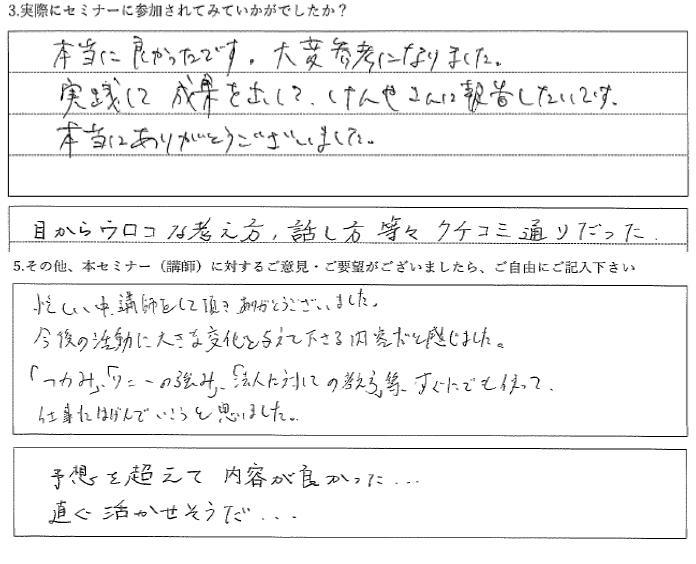 3.実際にセミナーに参加されてみていかがでしたか？
本当に良かったです。大変参考になりました。
実践して成果を出して、けんやさんに報告したいです。
本当にありがとうございました。
目からウロコな考え方，話し方 等々 クチコミ通りだった．
5.その他、本セミナー（講師）に対するご意見・ご要望がございましたら、ご自由にご記入下さい
忙しい中、講師をして頂きありがとうございました。
今後の活動に大きな変化を与えて下さる内容だと感じました。
「つかみ」、の強み」、「法人に対しての教え」等、すぐにでも使って、
仕事にはげんでいこうと思いました。
予想を超えて 内容が良かった...
直ぐ活かせそうだ...